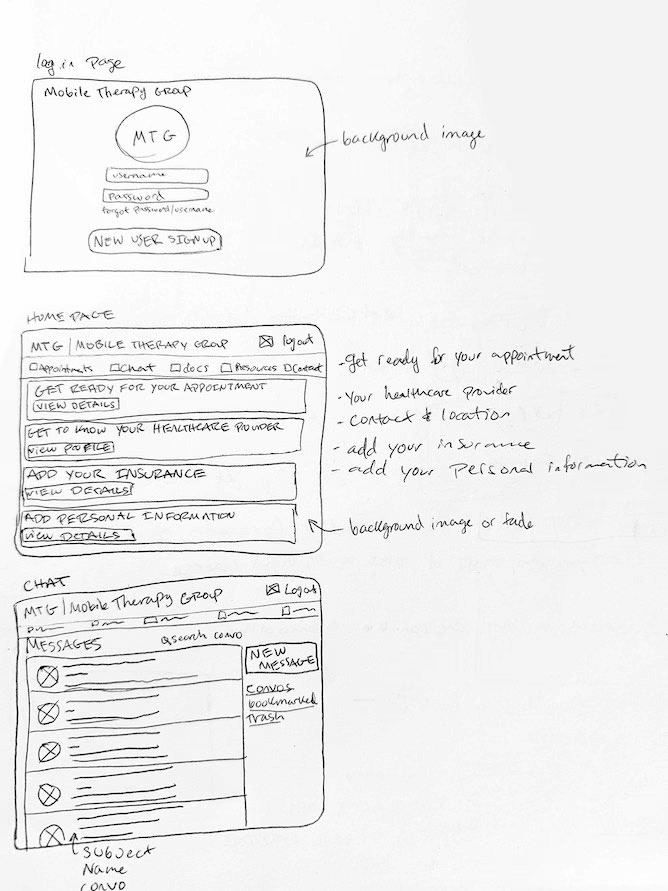 log in page
Mobile Therapy Group
MTG
username
password
forgot password/username
NEW USER SIGNUP
background image
HOME PAGE
MTG | MOBILE THERAPY GROUP logout
Appointments chat docs Resources Contact
GET READY FOR YOUR APPOINTMENT
VIEW DETAILS
GET TO KNOW YOUR HEALTHCARE PROVIDER
VIEW PROFILE
ADD YOUR INSURANCE
VIEW DETAILS
ADD PERSONAL INFORMATION
VIEW DETAILS
- get ready for your appointment
- Your healthcare provider
- Contact & location
- add your insurance
- add your personal information
background image or fade
CHAT
MTG | Mobile Therapy Group Logout
MESSAGES search convo
NEW MESSAGE
Convos
bookmarked
Trash
Subject
Name
Convo